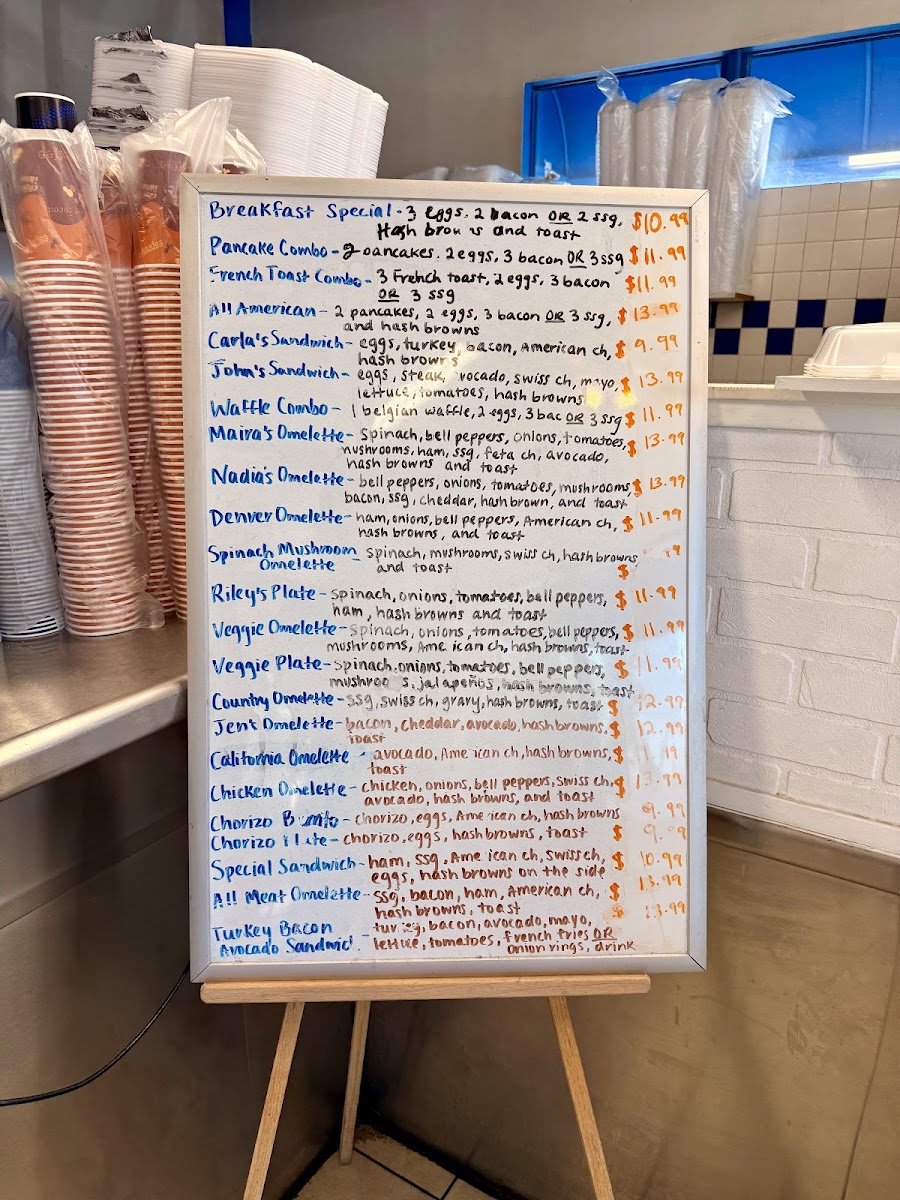 Breakfast Special - 3 eggs, 2 bacon OR 2 ssg, $10.99
Hash brow s and toast
Pancake Combo - 2 pancakes, 2 eggs, 3 bacon OR 3 ssg $11.99
French Toast Combo - 3 French toast, 2 eggs, 3 bacon $11.99
OR 3 ssg
All American - 2 pancakes, 2 eggs, 3 bacon OR 3 ssg, $13.99
and hash browns
Carla's Sandwich - eggs, turkey, bacon, American ch, $9.99
hash browns
John's Sandwich - eggs, steak, avocado, swiss ch, mayo, $13.99
lettuce, tomatoes, hash browns
Waffle Combo - 1 belgian waffle, 2 eggs, 3 bac OR 3 ssg $11.99
Maira's Omelette - spinach, bell peppers, onions, tomatoes, $13.99
mushrooms, ham, ssg, feta ch, avocado,
hash browns and toast
Nadia's Omelette - bell peppers, onions, tomatoes, mushrooms $13.99
bacon, ssg, cheddar, hash brown, and toast
Denver Omelette - ham, onions, bell peppers, American ch, $11.99
hash browns, and toast
Spinach Mushroom - spinach, mushrooms, swiss ch, hash browns
Omelette and toast $
Riley's Plate - spinach, onions, tomatoes, bell peppers, $11.99
ham, hash browns and toast
Veggie Omelette - spinach, onions, tomatoes, bell peppers, $11.99
mushrooms, Ame ican ch, hash browns, toast
Veggie Plate - spinach, onions, tomatoes, bell peppers, $11.99
mushroo s, jalapeños, hash browns, toast
Country Omelette - ssg, swiss ch, gravy, hash browns, toast $12.99
Jen's Omelette - bacon, cheddar, avocado, hash browns, $12.99
toast
California Omelette - avocado, Ame ican ch, hash browns, $
toast
Chicken Omelette - chicken, onions, bell peppers, swiss ch, $13.99
avocado, hash browns, and toast
Chorizo Burrito - chorizo, eggs, Ame ican ch, hash browns 9.99
Chorizo Plate - chorizo, eggs, hash browns, toast $9.99
Special Sandwich - ham, ssg, Ame ican ch, swiss ch, $10.99
eggs, hash browns on the side
All Meat Omelette - ssg, bacon, ham, American ch, $13.99
hash browns, toast
Turkey Bacon - turkey, bacon, avocado, mayo, $13.99
Avocado Sandwich lettuce, tomatoes, french fries OR
onion rings, drink